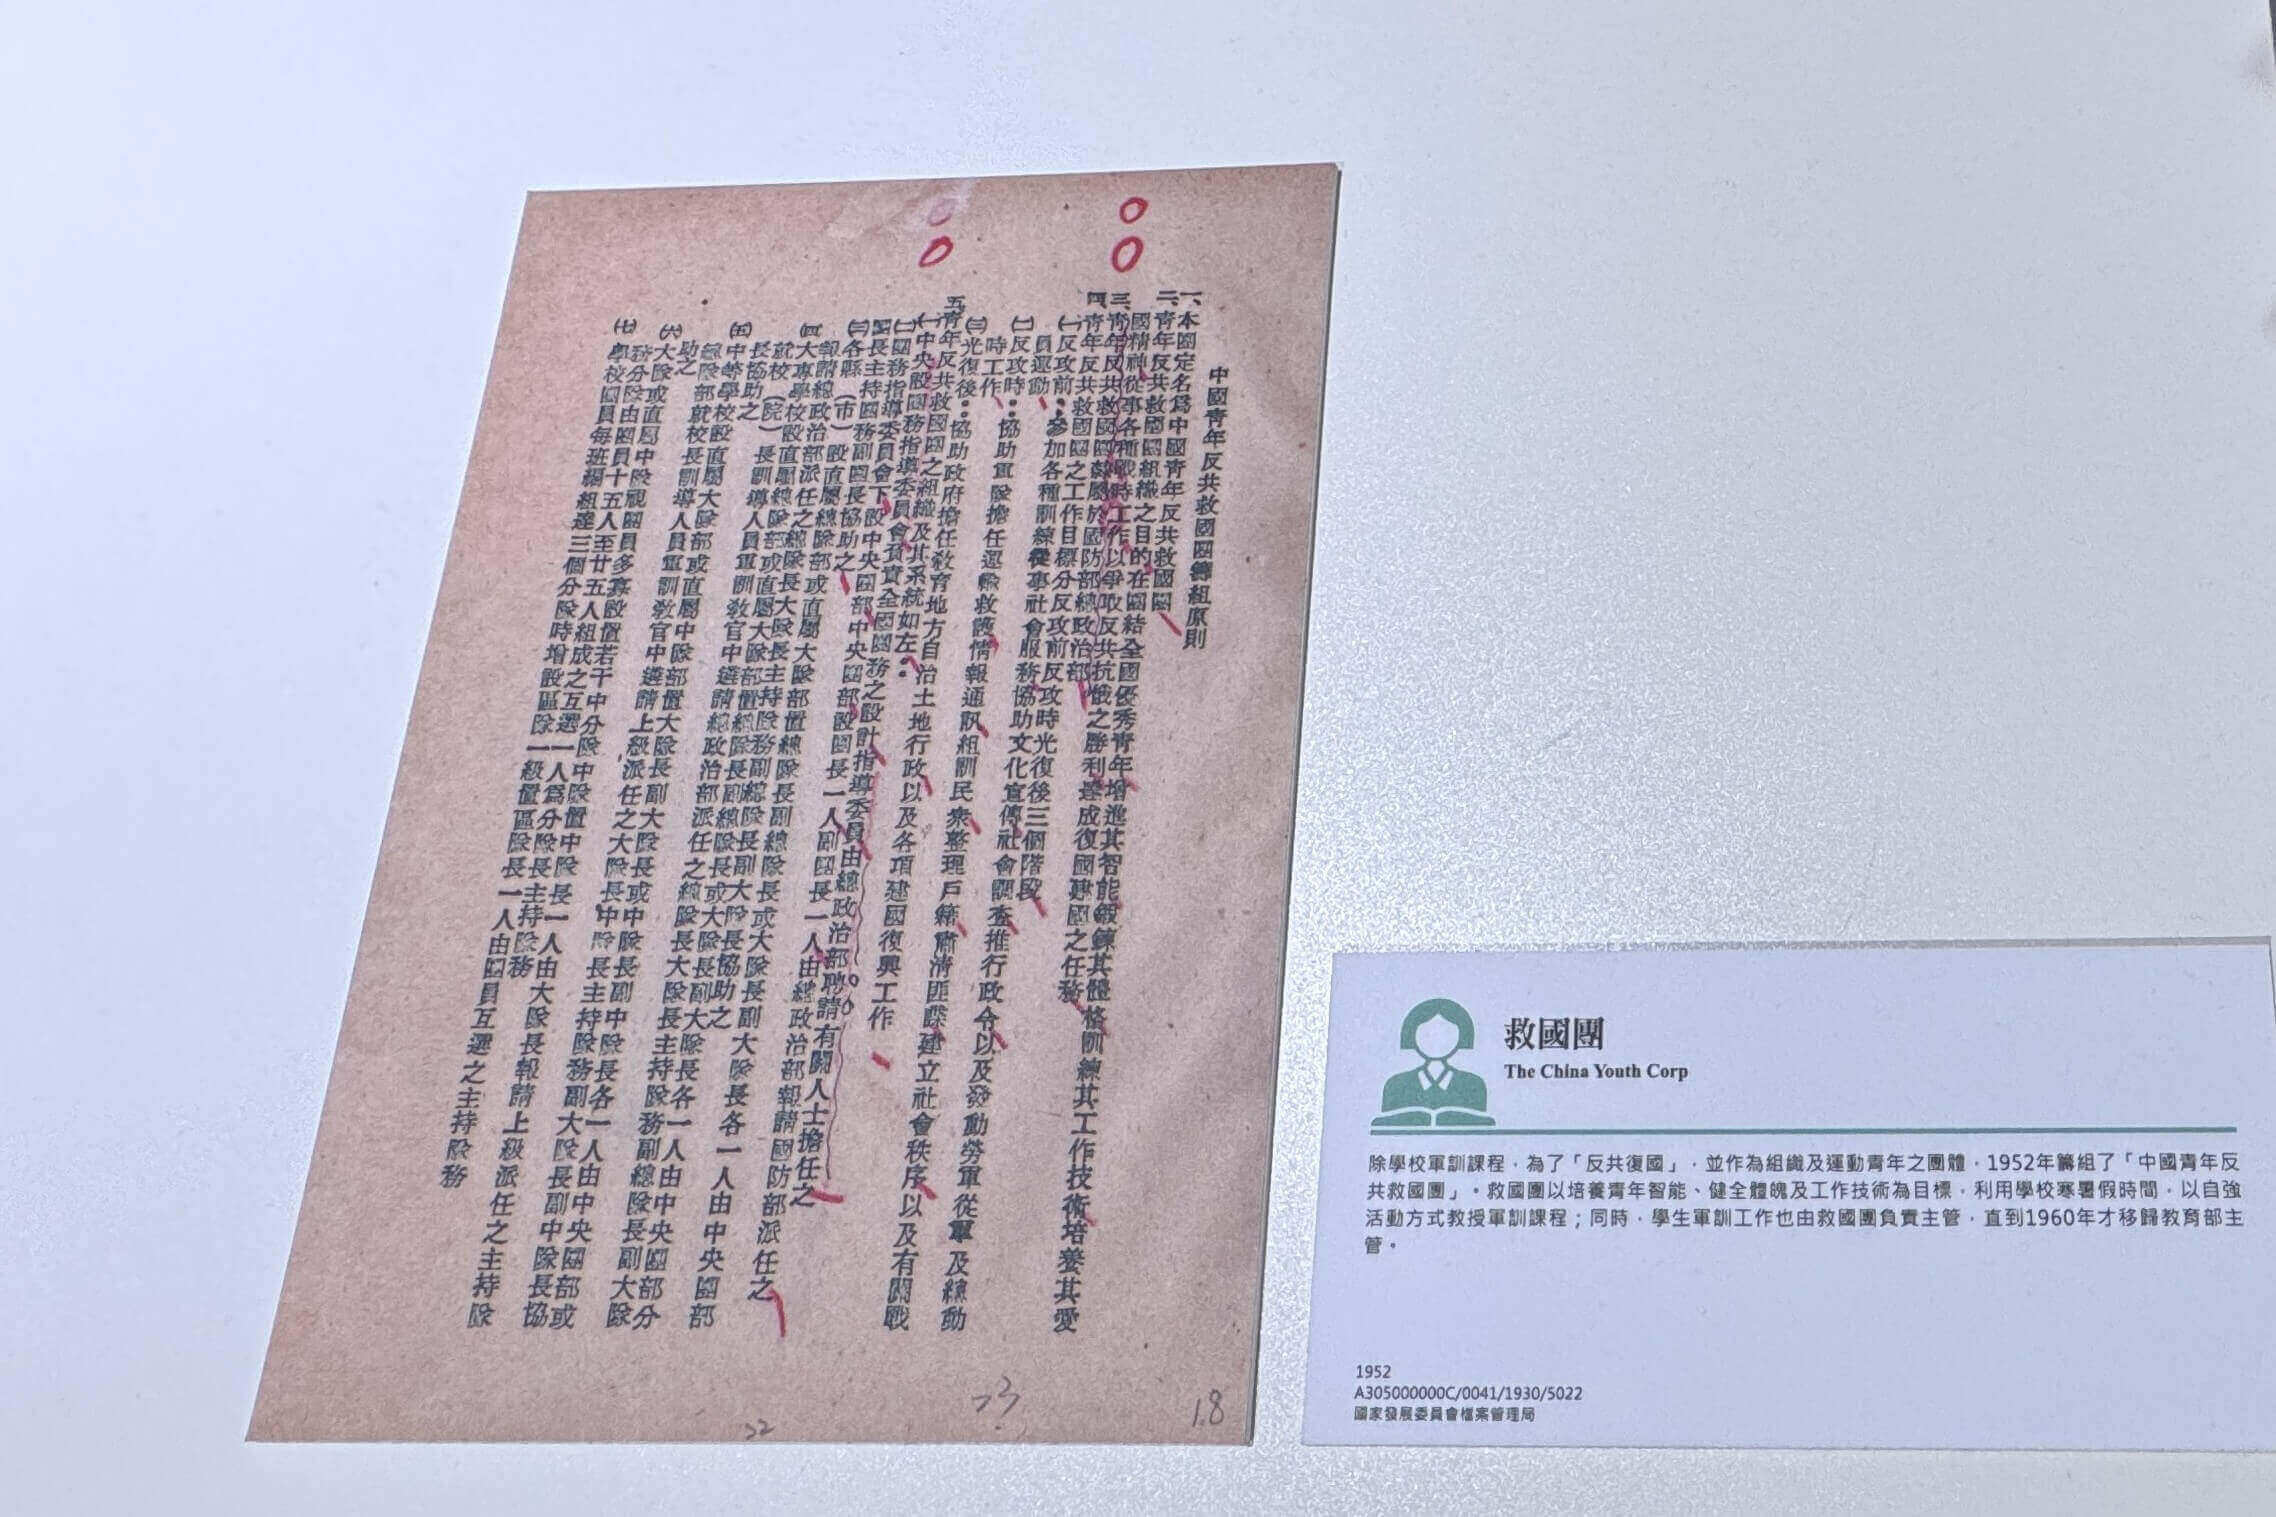 中國青年反共救國團籌組原則
一、本團定名為中國青年反共救國團
二、青年反共救國團組織之目的在團結全國優秀青年增進其智能鍛鍊其體格訓練其工作技術培養其愛
國精神從事各種戰時工作以爭取反共抗俄之勝利達成復國建國之任務
三、青年反共救國團隸屬於國防部總政治部
四、青年反共救國團之工作目標分反攻前反攻時光復後三個階段
㈠反攻前：參加各種訓練從事社會服務協助文化宣傳社會調查推行政令以及發動勞軍從軍及總動
員運動
㈡反攻時：協助軍隊擔任運輸救護情報通訊組訓民衆整理戶籍肅清匪諜建立社會秩序以及有關戰
時工作
㈢光復後：協助政府擔任教育地方自治土地行政以及各項建國復興工作
五、青年反共救國團之組織及其系統如左：
㈠中央設團務指導委員會負責全國團務之設計指導委員由總政治部聘請有關人士擔任之
㈡團務指導委員會下設中央團部中央團部設團長一人副團長一人由總政治部報請國防部派任之
團長主持團務副團長協助之
㈢各縣（市）設直屬總隊部或直屬大隊部置總隊長副總隊長或大隊長副大隊長各一人由中央團部
報請總政治部派任之總隊長大隊長主持隊務副總隊長副大隊長協助之
㈣大專學校設直屬總隊部或直屬大隊部置總隊長副總隊長或大隊長副大隊長各一人由中央團部分
就校（院）長訓導人員軍訓教官中遴請總政治部派任之總隊長大隊長主持隊務副總隊長副大隊
長協助之
㈤中等學校設直屬大隊部或直屬中隊部置大隊長副大隊長或中隊長副中隊長各一人由中央團部或
總隊部就校長訓導人員軍訓教官中遴請上級派任之大隊長中隊長主持隊務副大隊長副中隊長協
助之
㈥大隊或直屬中隊視團員多寡設置若干中分隊中隊置中隊長一人由大隊長報請上級派任之主持隊
務分隊由團員十五人至廿五人組成之互選一人為分隊長主持隊務
㈦學校團員每班編組達三個分隊時增設區隊一級置區隊長一人由團員互選之主持隊務
22
23
18
救國團
The China Youth Corp
除學校軍訓課程，為了「反共復國」，並作為組織及運動青年之團體，1952年籌組了「中國青年反
共救國團」。救國團以培養青年智能、健全體魄及工作技術為目標，利用學校寒暑假時間，以自強
活動方式教授軍訓課程；同時，學生軍訓工作也由救國團負責主管，直到1960年才移歸教育部主
管。
1952
A305000000C/0041/1930/5022
國家發展委員會檔案管理局